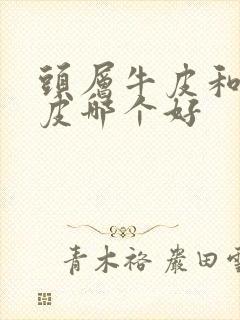 頭層牛皮和
皮哪个好
青木裕 嚴田雪